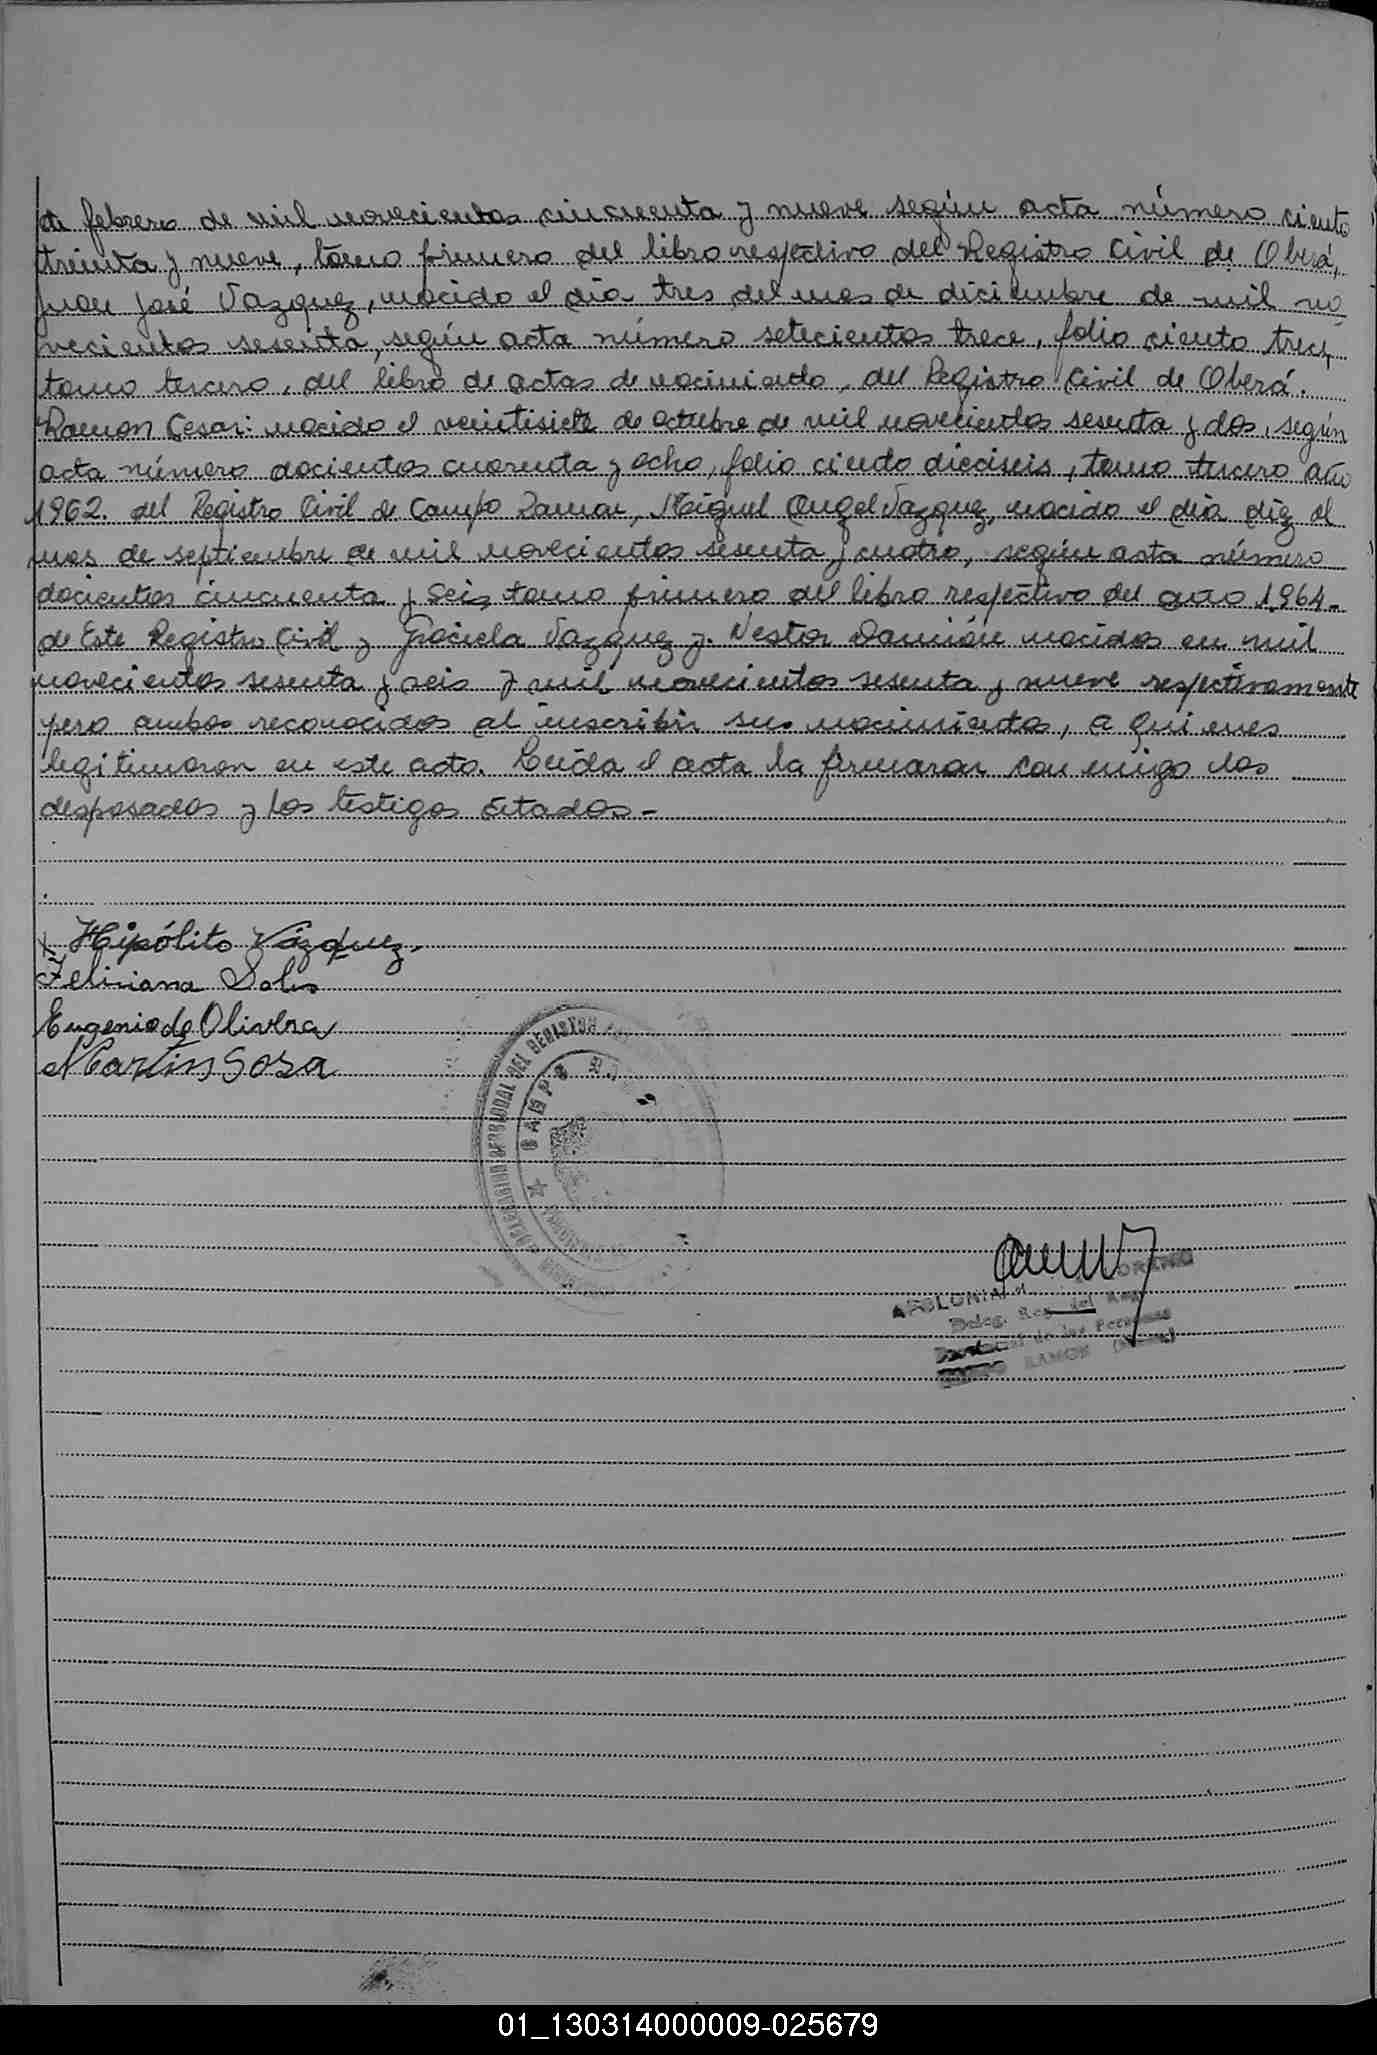 de febrero de mil novecientos cincuenta y nueve según acta número ciento
treinta y nueve, tomo primero del libro respectivo del Registro Civil de Oberá,
Juan José Vazquez, nacido el día tres del mes de diciembre de mil no
vecientos sesenta, según acta número setecientos trece, folio ciento trece,
tomo tercero, del libro de actas de nacimiento, del Registro Civil de Oberá.
Ramon Cesar: nacido el veintisiete de octubre de mil novecientos sesenta y dos, según
acta número docientos cuarenta y ocho, folio ciento dieciseis, tomo tercero año
1962. del Registro Civil de Campo Ramon, Miguel Angel Vazquez, nacido el día diez del
mes de septiembre de mil novecientos sesenta y cuatro, según acta número
docientos cincuenta y seis tomo primero del libro respectivo del año 1964-
de Este Registro Civil y Graciela Vazquez y. Nestor Damián nacidos en mil
novecientos sesenta y seis y mil novecientos sesenta y nueve respectivamente
pero ambos reconocidos al inscribir sus nacimientos, a quienes
legitimaron en este acto. Leída el acta la firmaron con migo los
desposados y los testigos citados-
Hipólito Vázquez.
Feliciana Solis
Eugenio de Olivera
Martin Sosa
DEL REGISTRO
CAMPO
APOLONIA
Deleg. Reg. del
de las Personas
RAMON
01_130314000009-025679